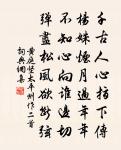 千古人心指下傳
楊姝煙月過年年
不知心向誰邊切
彈盡松風欲斷弦
黃庭堅太平州作二首
詞典網集